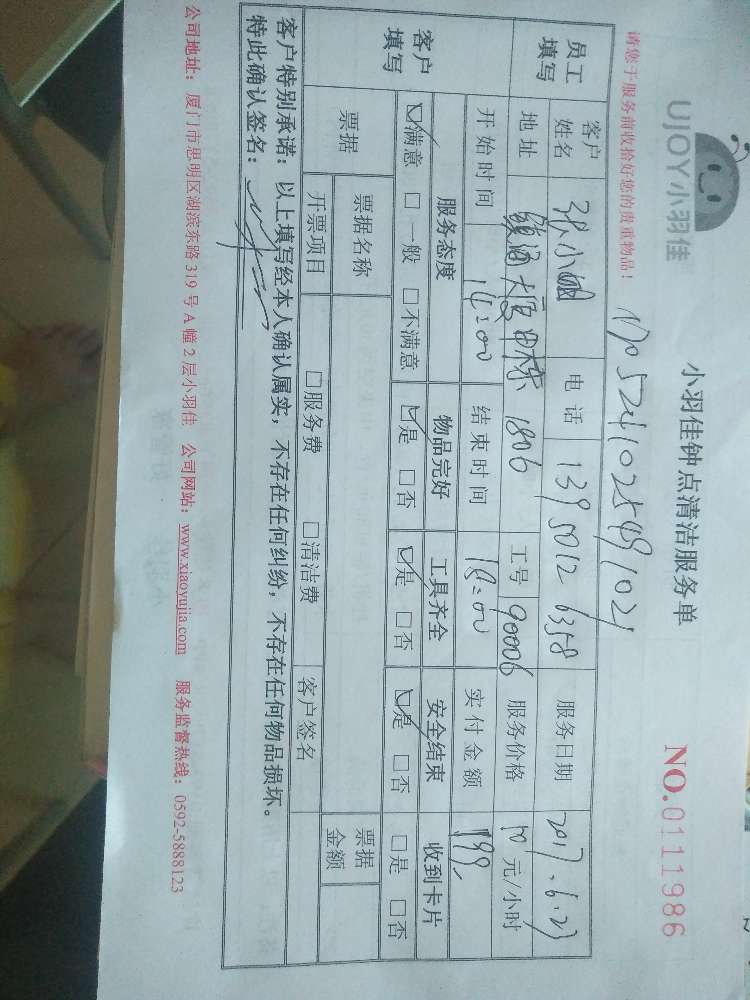 UJOY小羽佳
小羽佳钟点清洁服务单
NO.0111986
请您于服务前收拾好您的贵重物品！
员工填写
客户姓名 张小姐 电话 13950126358 服务日期 2017.6.23
地址 大厦 栋 1806 工号 90006 服务价格 元/小时
客户填写
开始时间 14:00 结束时间 18:00 实付金额 199
服务态度 物品完好 工具齐全 安全结束 收到卡片
☑满意 □一般 □不满意 ☑是 □否 ☑是 □否 ☑是 □否 □是 □否
票据 票据名称 票据金额
开票项目 □服务费 □清洁费 客户签名
客户特别承诺：以上填写经本人确认属实，不存在任何纠纷，不存在任何物品损坏。
特此确认签名：
公司地址：厦门市思明区湖滨东路 319 号 A 幢 2 层小羽佳 公司网站：www.xiaoyujia.com 服务监督热线：0592-5888123